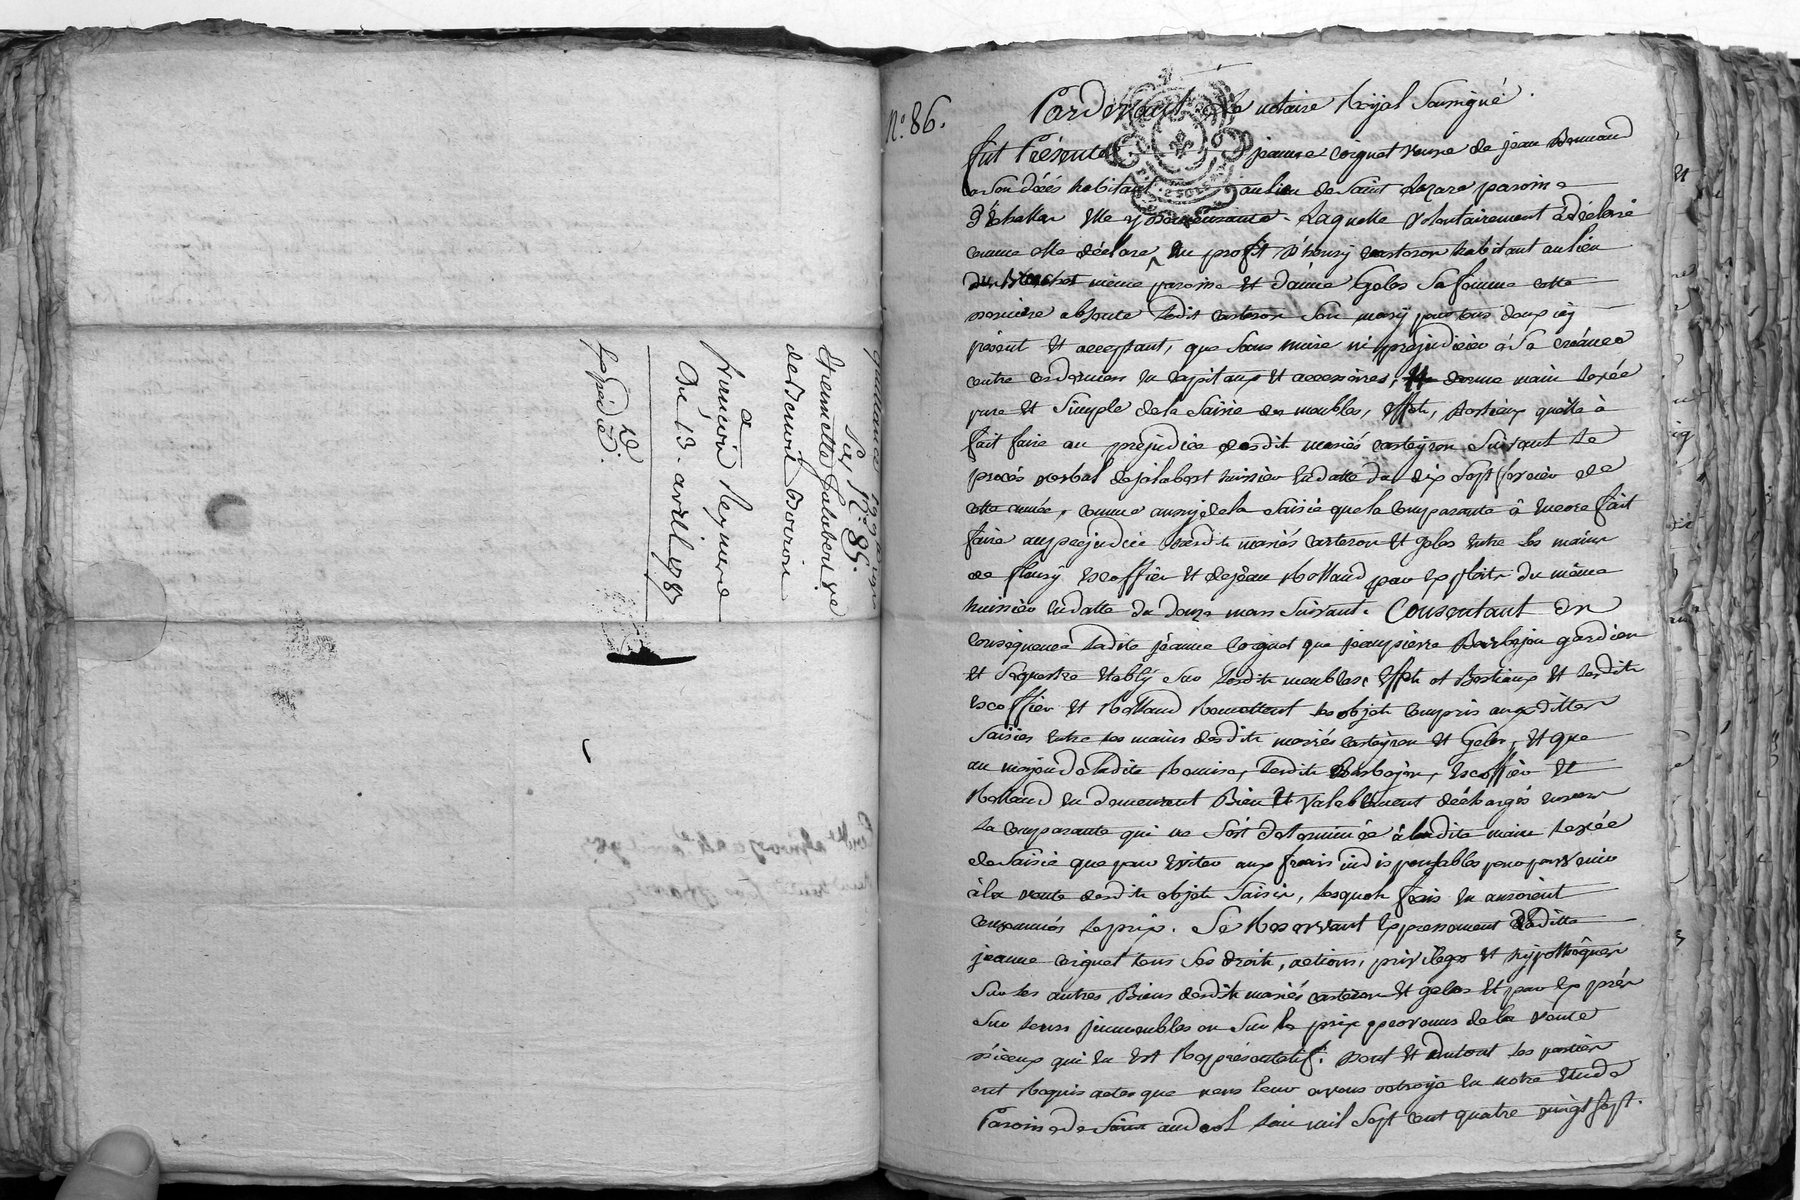 quittance
N° 85.
de Benoit Boiron
a
Reymere
Du 13. avril 1787
Expédié
N° 86.
Pardevant le notaire Royal soussigné.
fut Présente jeanne Coignet veuve de jean
a son décés habitant au lieu de Saint Lazare paroisse
Laquelle volontairement à déclaré
comme elle déclare au profit d'henry Casteron habitant au lieu
même paroisse et d'anne Gelos Sa femme cette
derniere absente ledit Casteron Son mary pour tous deux icy
présent et acceptant, que Sans nuire ni préjudicier à Sa créance
contre ces derniers en capitaux et accessoires, donne main levée
pure et Simple de la Saisie des meubles, effets, bestiaux qu'elle à
fait faire au préjudice desdits mariés Casteyron Suivant le
procés verbal de jalabert huissier en datte du dix Sept fevrier de
cette année, comme aussy de la Saisie que la comparante à encore fait
faire au préjudice desdits mariés Casteron et gelos entre les mains
de fleury Escoffier et de jean Rolland par exploits du même
huissier en datte du douze mars Suivant. Consentant en
conséquence ladite jeanne Coignet que jean pierre Barbejon gardien
et Sequestre etably Sur lesdits meubles, effets et Bestiaux et lesdits
escoffier et Rolland Remettent les objets compris auxdittes
Saisies entre les mains desdits mariés Casteyron et Gelos, et que
au moyen de ladite Remise, lesdits Barbejon, escoffier et
Rolland en demeurent Bien et valablement déchargés envers
la comparante qui ne S'est determinée à ladite main levée
de Saisie que pour eviter aux frais indispensables pour parvenir
à la vente desdits objets Saisis, lesquels frais en auroient
consommés le prix. Se Reservant expressement laditte
jeanne Coignet tous Ses droits, actions, privileges et hypothèques
Sur les autres Biens desdits mariés Casteron et gelos et par exprés
Sur leurs immeubles ou Sur le prix provenus de la vente
d'iceux qui en est Représentatif. dont et du tout les parties
ont Requis actes que nous leur avons octroyé en notre étude
Paroisse de Saint andeol l'an mil Sept cent quatre vingt Sept.